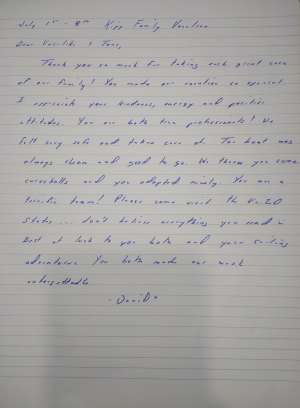 July 1st - 8th Kipp Family Vacation
Dear Vassilis & Tons,
Thank you so much for taking such great care
of our family! You made our vacation so special.
I appreciate your kindness, energy and positive
attitudes. You are both true professionals! We
felt very safe and taken care of. The boat was
always clean and good to go. We threw you some
curveballs and you adapted nicely. You are a
terrific team! Please come visit the United
States... don't believe everything you read :)
Best of luck to you both and your sailing
adventures. You both made our week
unforgettable.
- David